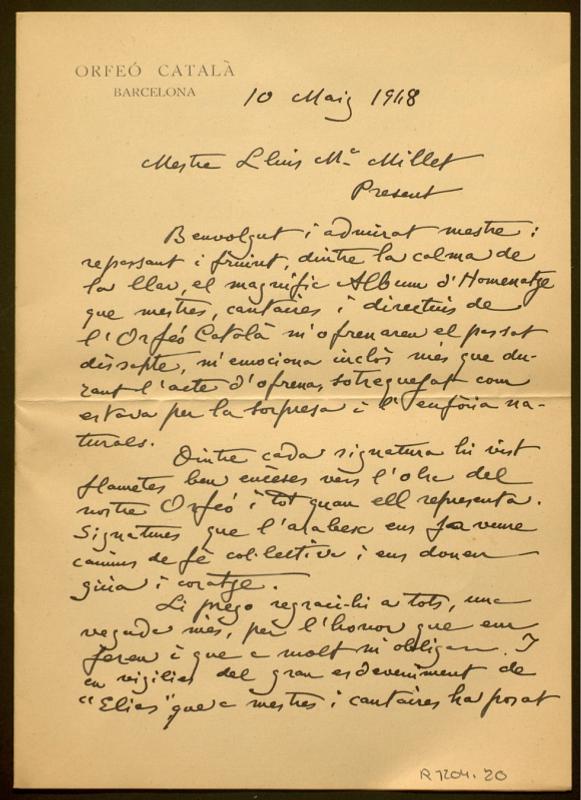 ORFEÓ CATALÀ
BARCELONA
10 Maig 1948
Mestre Lluis Mª Millet
Present
Benvolgut i admirat mestre:
repassant i fruint, dintre la calma de
la llar, el magnífic Album d'Homenatge
que mestres, cantaires i directius de
l'Orfeó Català m'ofrenaren el passat
dissapte, m'emociona inclòs més que du-
rant l'acte d'ofrena, sotraguejat com
estava per la sorpresa i l'eufòria na-
turals.
Dintre cada signatura hi vist
flametes ben enceses vers l'obra del
nostre Orfeó i tot quan ell representa.
Signatures que l'arabesc ens fa veure
camins de fè col·lectiva i ens donen
guia i coratge.
Li prego regraciï-hi a tots, una
vegada més, per l'honor que em
feren i que a molt m'obliguen. I
en vigílies del gran esdeveniment de
"Elias", que a mestres i cantaires ha posat
R 1204. 20